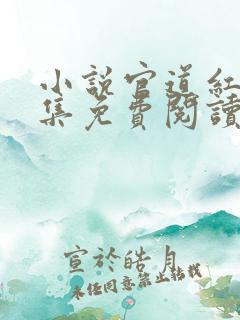 小說官道紅
集免費閱讀
宣於皓月
未任同意禁止转载